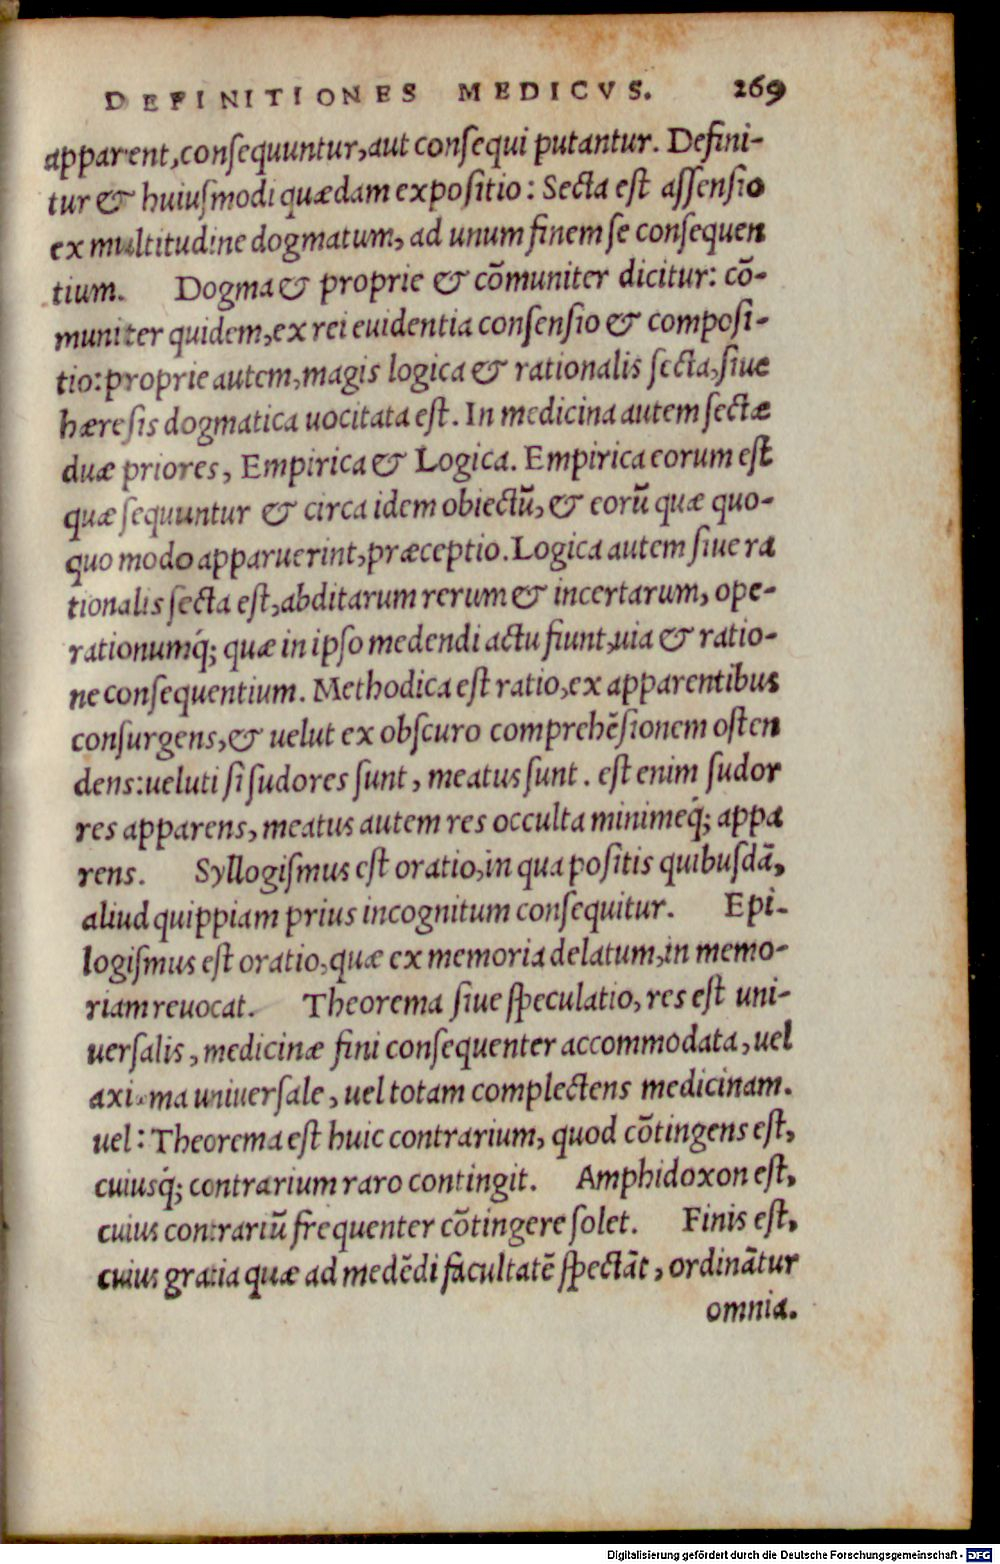 DEFINITIONES MEDICVS. 269
apparent, conſequuntur, aut conſequi putantur. Defini-
tur & huiuſmodi quædam expoſitio: Secta eſt aſſenſio
ex multitudine dogmatum, ad unum finem ſe conſequen
tium. Dogma & proprie & cōmuniter dicitur: cō-
muniter quidem, ex rei euidentia conſenſio & compoſi-
tio: proprie autem, magis logica & rationalis ſecta, ſiue
hæreſis dogmatica uocitata eſt. In medicina autem ſectæ
duæ priores, Empirica & Logica. Empirica eorum eſt
quæ ſequuntur & circa idem obiectū, & eorū quæ quo-
quo modo apparuerint, præceptio. Logica autem ſiue ra
tionalis ſecta eſt, abditarum rerum & incertarum, ope-
rationumq́; quæ in ipſo medendi actu fiunt, uia & ratio-
ne conſequentium. Methodica eſt ratio, ex apparentibus
conſurgens, & uelut ex obſcuro comprehēſionem oſten
dens: ueluti ſi ſudores ſunt, meatus ſunt. eſt enim ſudor
res apparens, meatus autem res occulta minimeq́; appa
rens. Syllogiſmus eſt oratio, in qua poſitis quibuſdā,
aliud quippiam prius incognitum conſequitur. Epi-
logiſmus eſt oratio, quæ ex memoria delatum, in memo-
riam reuocat. Theorema ſiue ſpeculatio, res eſt uni-
uerſalis, medicinæ fini conſequenter accommodata, uel
axioma uniuerſale, uel totam complectens medicinam.
uel: Theorema eſt huic contrarium, quod cōtingens eſt,
cuiusq́; contrarium raro contingit. Amphidoxon eſt,
cuius contrariū frequenter cōtingere ſolet. Finis eſt,
cuius gratia quæ ad medēdi facultatē ſpectāt, ordināntur
omnia.
Digitalisierung gefördert durch die Deutsche Forschungsgemeinschaft - DFG